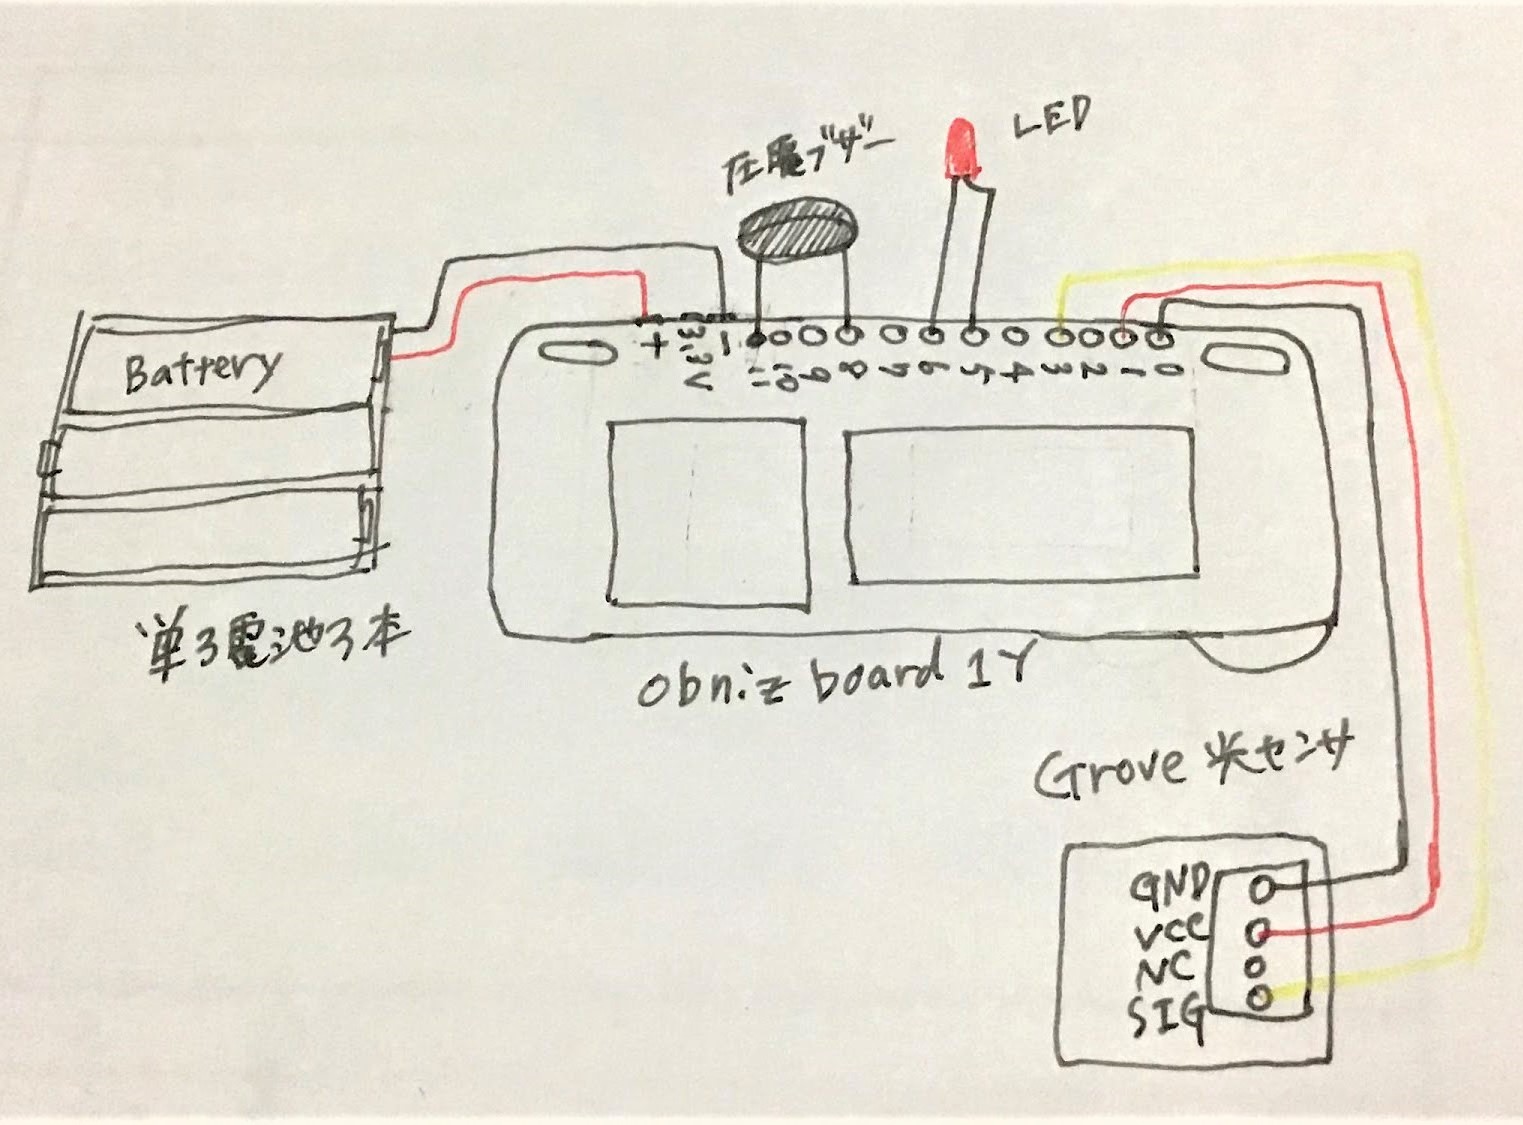 圧電ブザー
LED
Battery
+
3.3V
-
11 10 9 8 7 6 5 4 3 2 1 0
単3電池3本
obniz board 1Y
Grove 光センサ
GND
VCC
NC
SIG